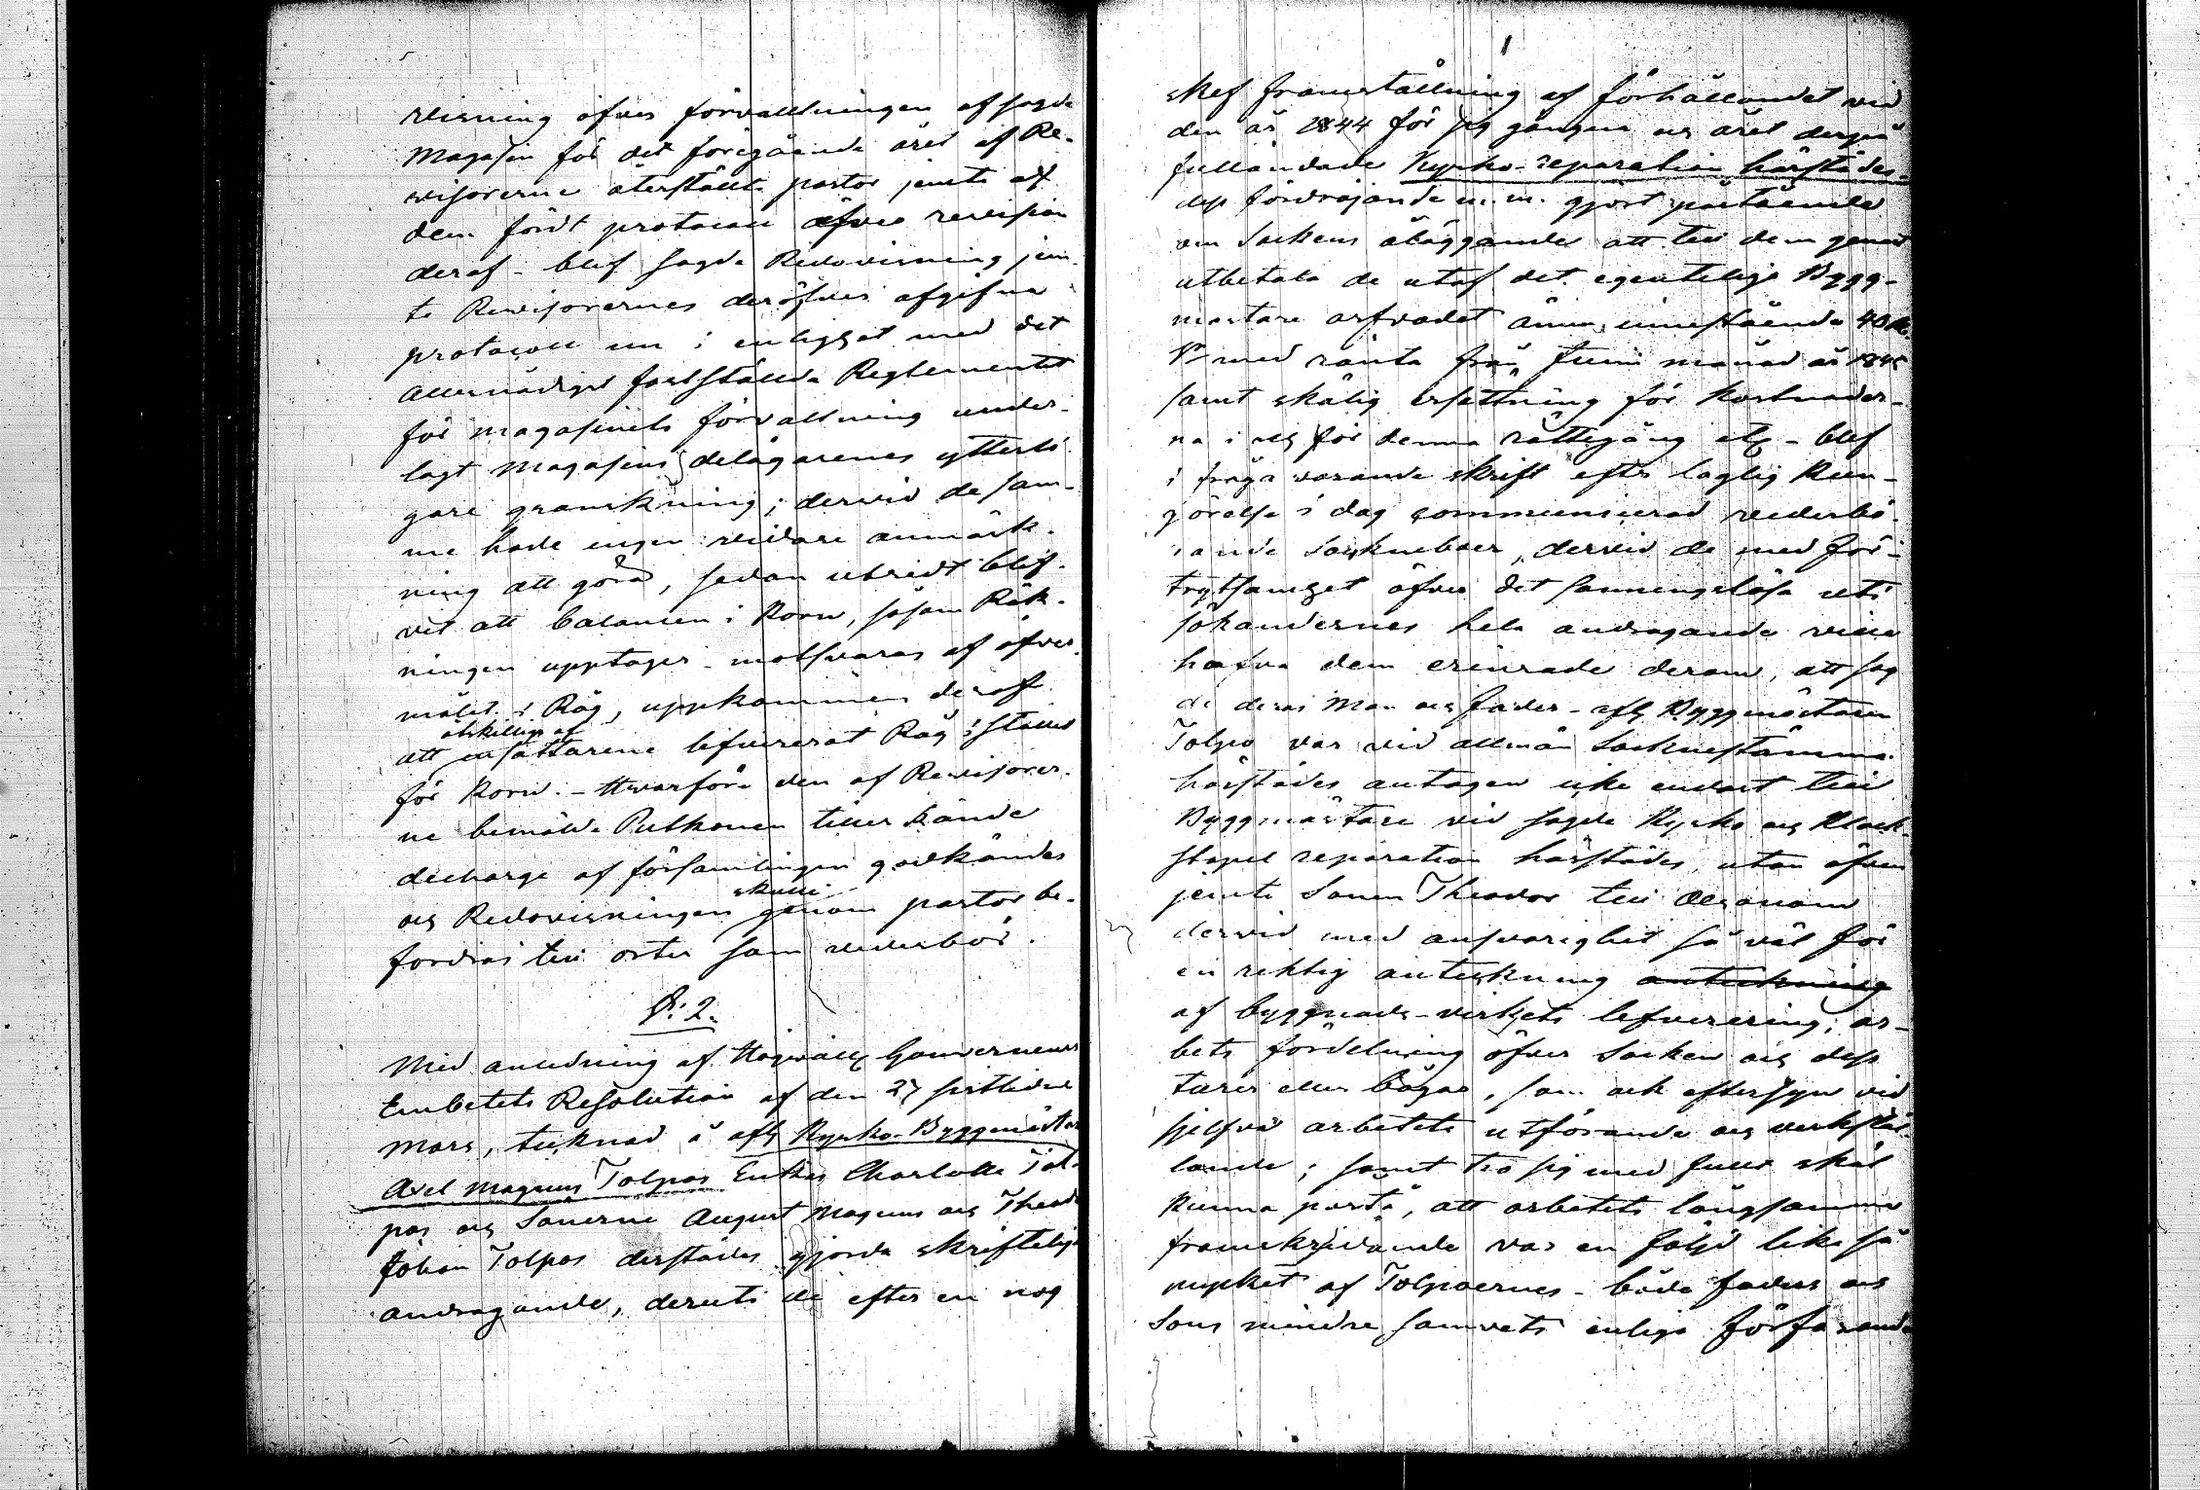 visning öfver förvaltningen af sagde
Magasin för det föregående året af Re-
visorerne återstält pastor jemte af
dem fördt protocoll öfver revision
deraf - blef sagde Redovisning jem-
te Revisorernes deröfver afgifna
protocoll nu i enlighet med det
allernådigst fastställda Reglementet
för magasinets förvaltning under-
lagt Magasins delägarenes ytterli-
gare granskning; dervid de sam-
me hade ingen vidare anmärk-
ning att göra, sedan utredt blif-
vit att balancen i Korn, såsom Räk-
ningen upptager - motsvaras af öfver-
målet i Råg, uppkommen deraf
att åtskillige af insättarene lefvererat Råg i stället
för Korn. - Hvarföre den af Revisorer-
ne bemälde Pulkonen tillerkände
decharge af församlingen godkändes
och Redovisningen skulle genom pastor be-
fordras till orter som vederbör.
§: 2.
Med anledning af Högvällof Gouverneurs
Embetets Resolution af den 27 sistlidne
Mars, tecknad å afl Kyrko-Byggmästar
Axel Magnus Tolpos Enkas Charlotta Tol-
pos och Sönerne August Magnus och Theodor
Johan Tolpos derstädes gjorda skriftelige
andragande, deruti de efter en nog
skef framställning af förhållandet vid
den år 1844 för sig gångna och året derpå
fulländade Kyrko-reparation härstädes-
dess fördröjande m. m. gjort påstående
om Sockens åläggande att till dem genast
utbetala de utaf det egentelige Bygg-
mästare arfvodet ännu innestående 40 R.
Sr med ränta från Junii månad år 1845
samt skälig ersättning för kostnader-
na i och för denna rättegång etc - blef
i fråga varande skrift efter laglig kun-
görelse i dag communicerad vederbö-
rande Sockneboer, dervid de med för-
trytsamhet öfver det sanningslösa uti
sökandernes hela andragande ville
hafva dem erinrade derom, att såg
de deras Man och fader - afl Byggmästaren
Tolpo var vid allmän Sockenstämma
härstädes antagen icke endast till
Byggmästare vid sagde Kyrko och Klock-
stapel reparation härstädes, utan äfven
jemte Sonen Theodor till Oeconom
dervid med ansvarighet så väl för
en riktig anteckning anteckning
af byggnads-virkets lefverering; ar-
bets fördelning öfver Socken och dess
turer eller bågar, som ock eftersyn vid
sjelfva arbetets utförande och verkstäl-
lande; samt tro sig med fullt skäl
kunna påstå, att arbetets långsamma
framskridande var en följd lika så
mycket af Tolpoernes - både faders och
Sons mindre samvets enliga förfarande